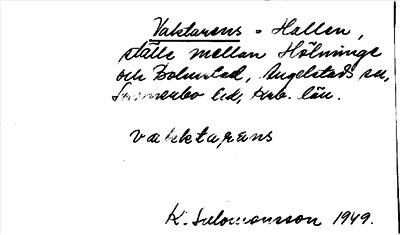 Vaktarens-Hallen,
ställe mellan Hölminge
och Bolmstad, Angelstads sn,
Sunnerbo hd, Krb. län.
vakktarens
K. Salomonsson 1949.